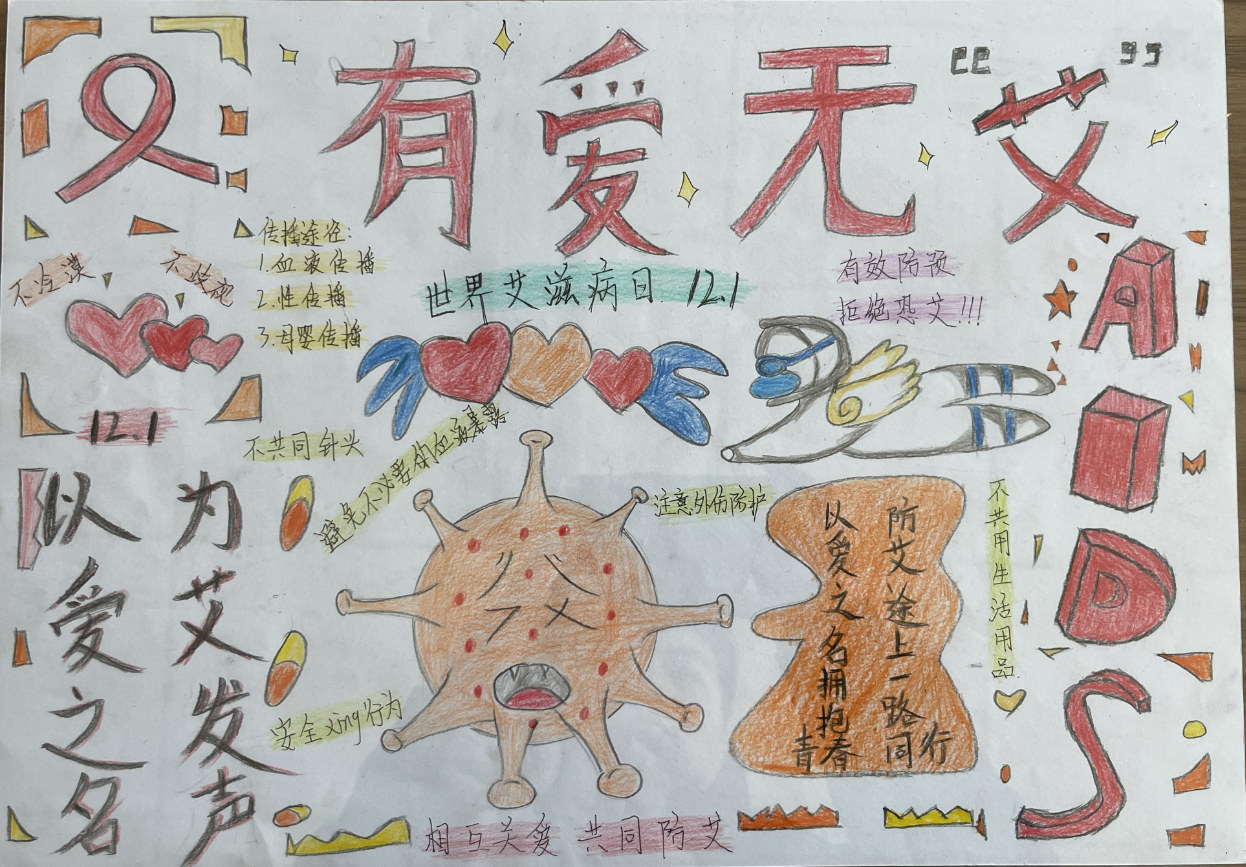 有爱无“艾”
传播途径:
1.血液传播
2.性传播
3.母婴传播
不冷漠
不歧视
世界艾滋病日 12.1
有效防预
拒绝恐艾!!!
AIDS
12.1
不共同针头
避免不必要的血液暴露
注意外伤防护
不共用生活用品
以爱之名
为艾发声
安全xing行为
以爱之名拥抱青春
防艾途上一路同行
相互关爱 共同防艾